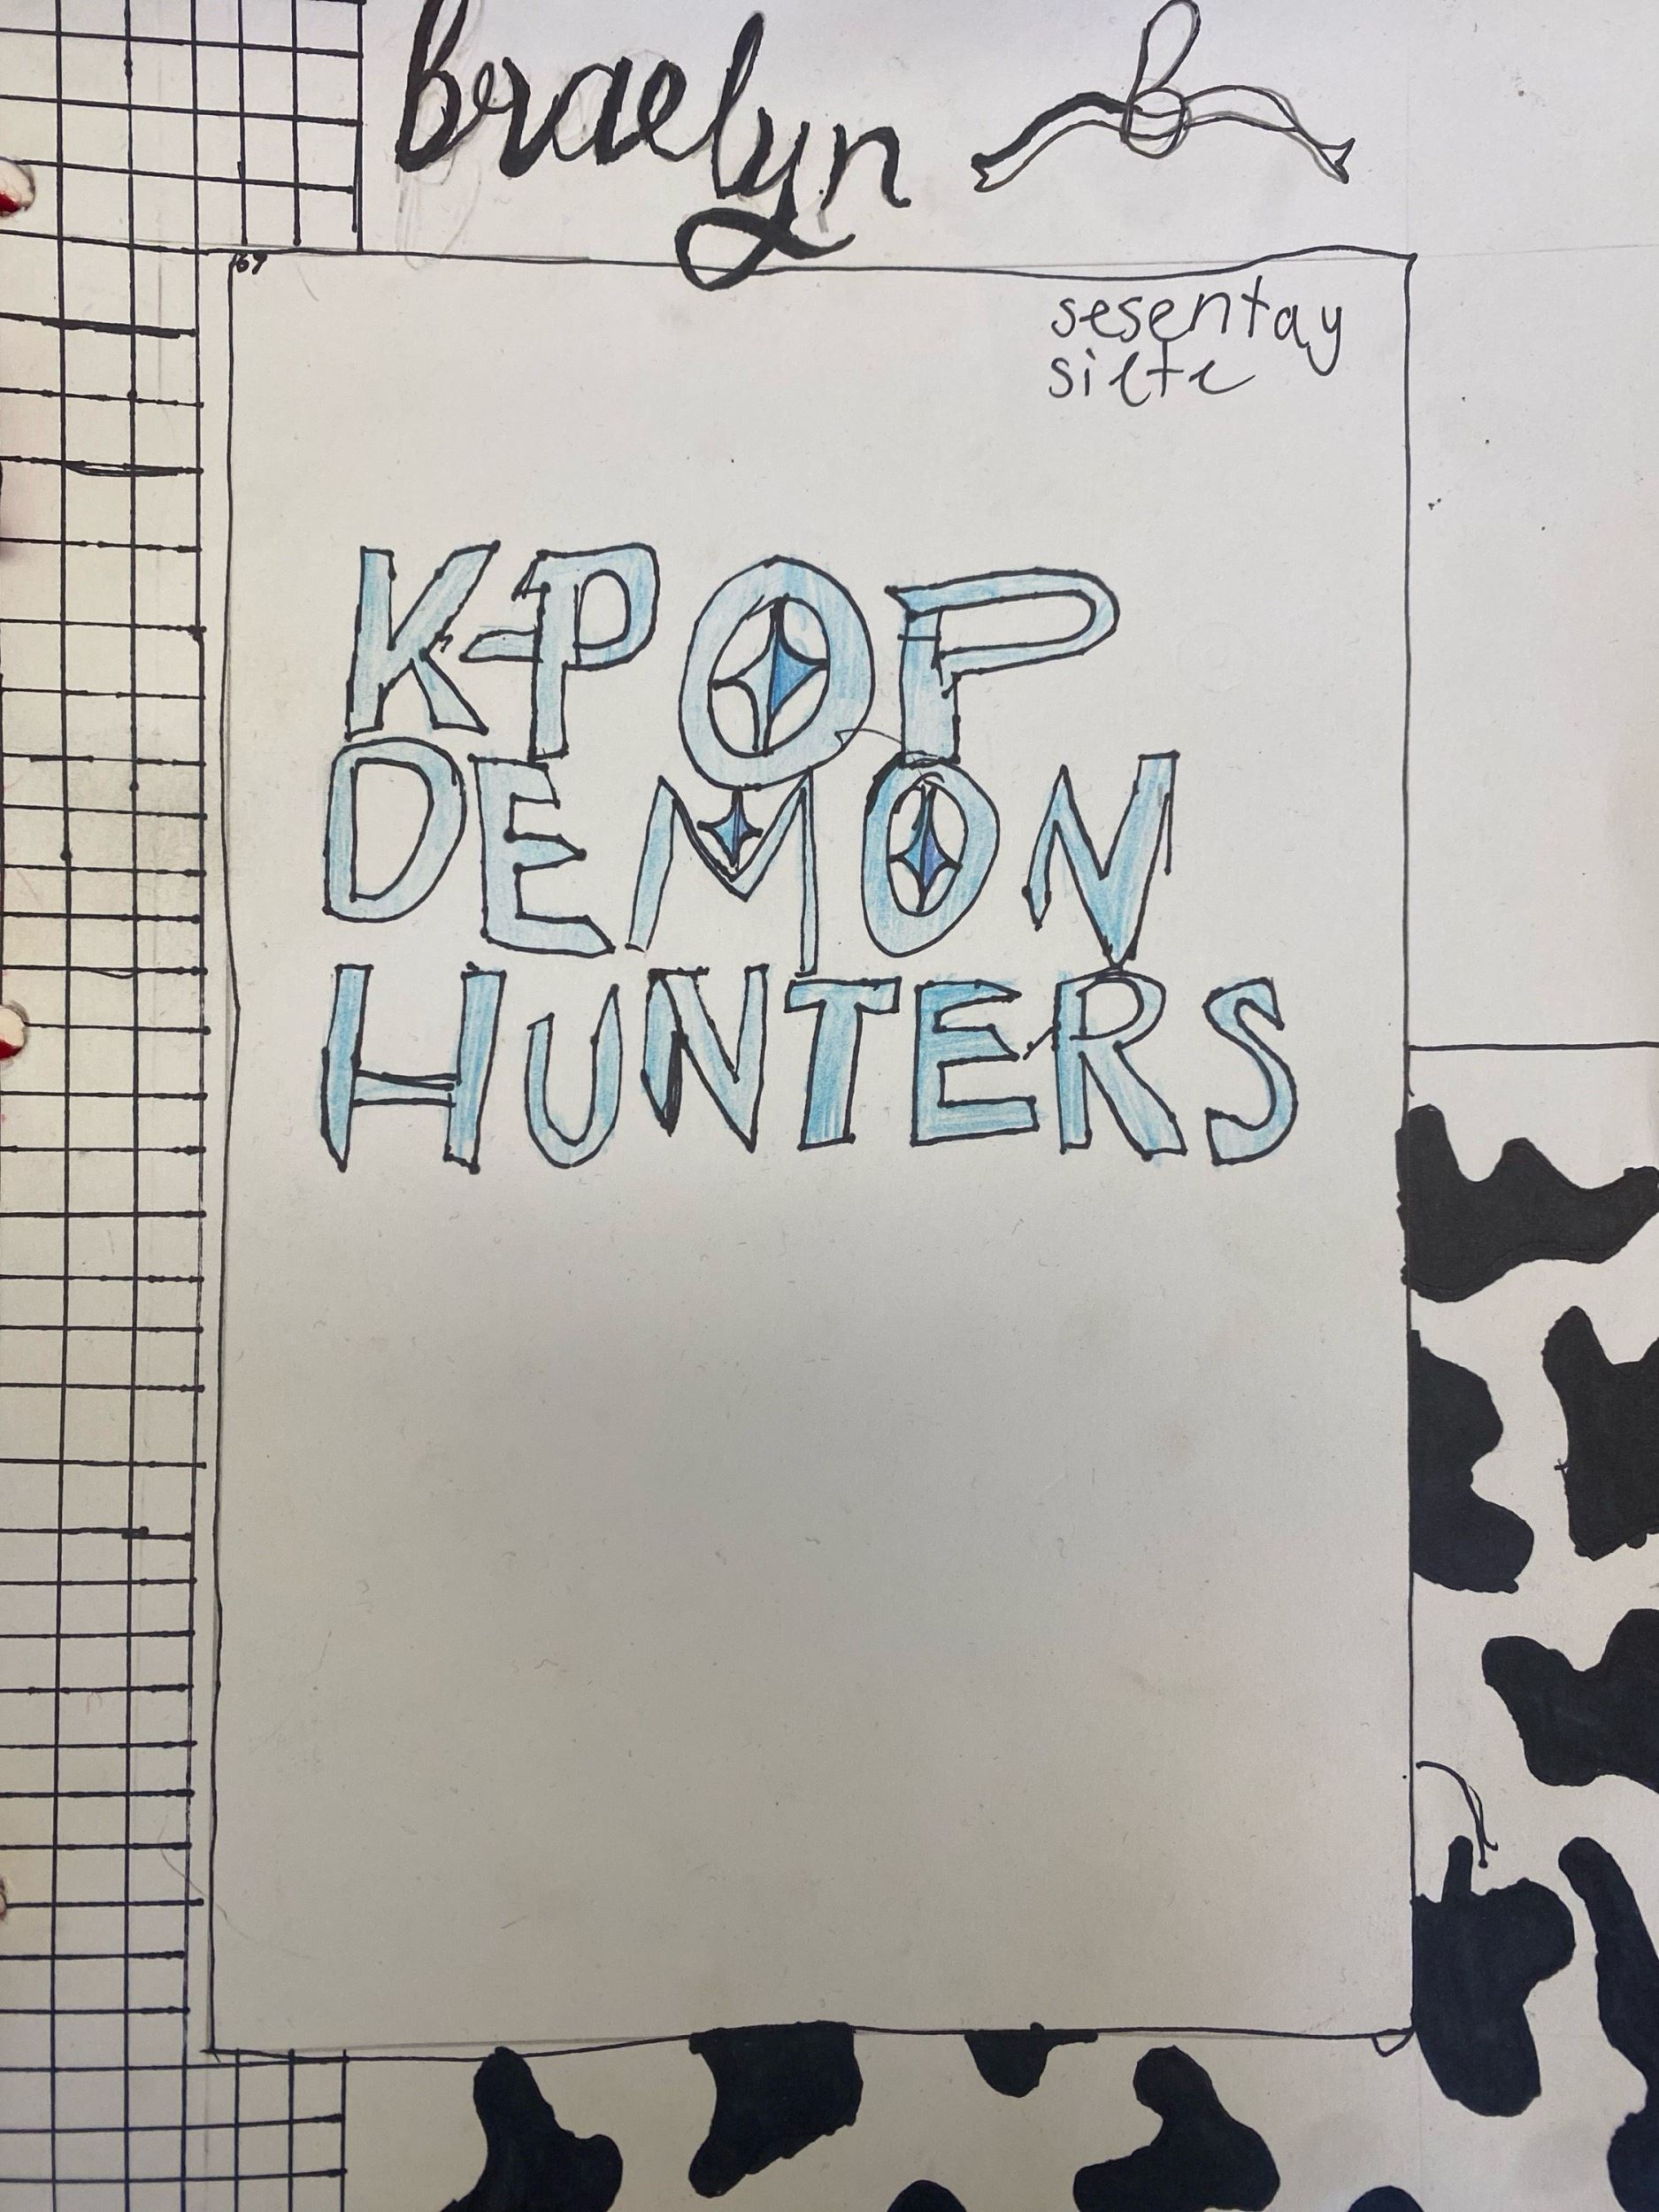 braelyn
67
sesentay
siete
K-POP
DEMON
HUNTERS